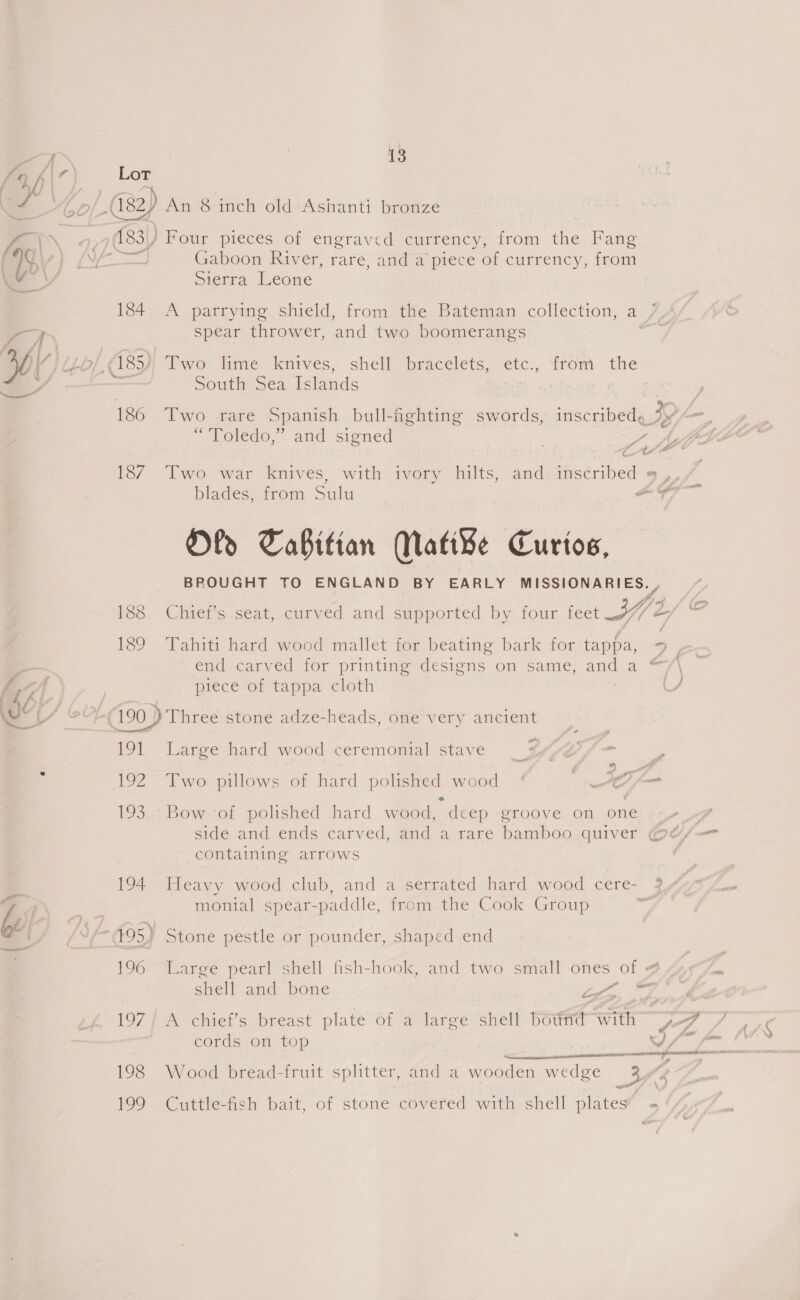 13
Lot
182 An 8 inch old Ashanti bronze
183 Four pieces of engraved currency, from the Fang
Gaboon River, rare, and a piece of currency, from
Sierra Leone
184 A parrying shield, from the Bateman collection, a
spear thrower, and two boomerangs
185 Two lime knives, shell bracelets, etc., from the
South Sea Islands
186 Two rare Spanish bull-fighting swords, inscribed,
“Toledo,” and signed
187 Two war knives, with ivory hilts, and inscribed
blades, from Sulu
Old Tahitian Native Curios,
BROUGHT TO ENGLAND BY EARLY MISSIONARIES.
188 Chief's seat, curved and supported by four feet
189 Tahiti hard wood mallet for beating bark for tappa,
end carved for printing designs on same, and a
piece of tappa cloth
190 Three stone adze-heads, one very ancient
191 Large hard wood ceremonial stave
192 Two pillows of hard polished wood
193 Bow of polished hard wood, deep groove on one
side and ends carved, and a rare bamboo quiver
containing arrows
194 Heavy wood club, and a serrated hard wood cere-
monial spear-paddle, from the Cook Group
195 Stone pestle or pounder, shaped end
196 Large pearl shell fish-hook, and two small ones of
shell and bone
197 A chief's breast plate of a large shell bound with
cords on top
198 Wood bread-fruit splitter, and a wooden wedge
199 Cuttle-fish bait, of stone covered with shell plates